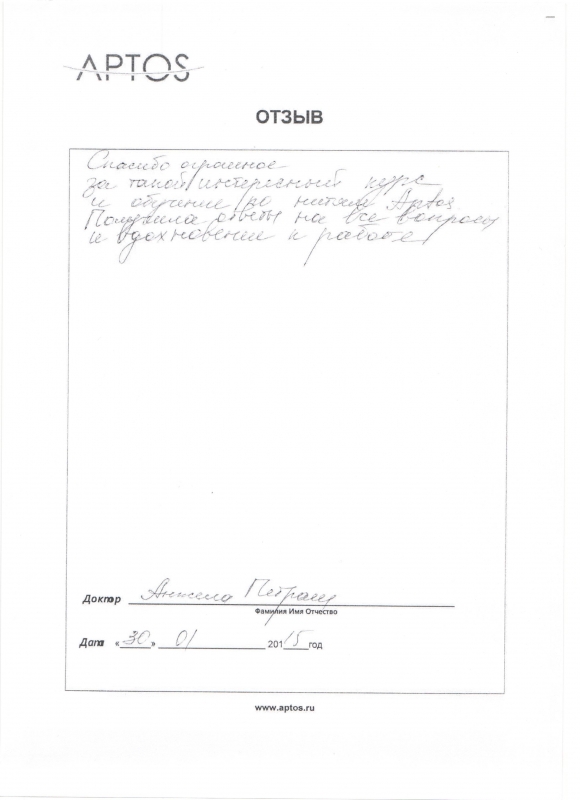 APTOS
ОТЗЫВ
Спасибо огромное
за такой интересный курс
и обучение по нитям Aptos
Получила ответы на все вопросы
и вдохновение к работе
Доктор Анжела Петраш
Фамилия Имя Отчество
Дата «30» 01 2015 год
www.aptos.ru